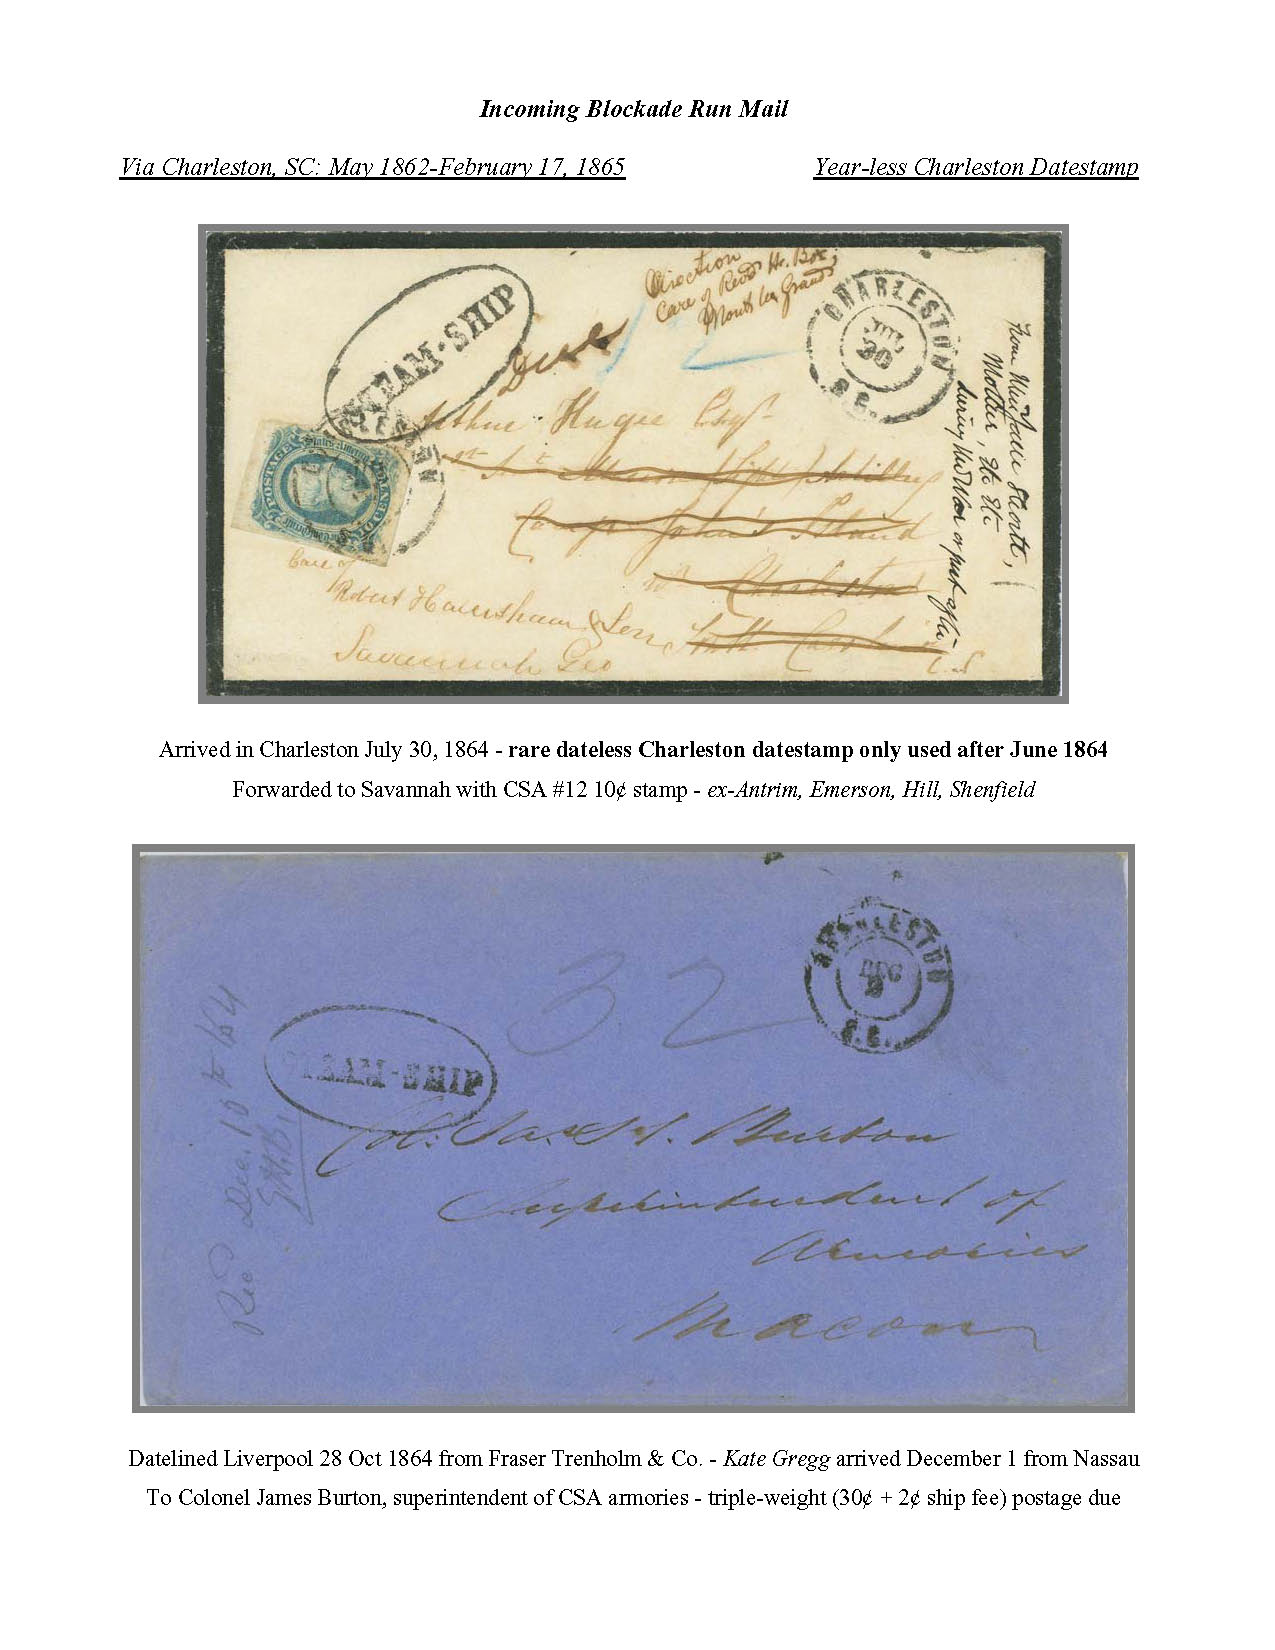 Incoming Blockade Run Mail
Via Charleston, SC: May 1862-February 17, 1865
Year-less Charleston Datestamp
Direction
Care of Revd H.
STEAM-SHIP
Due
12
CHARLESTON
JUL
30
S.C.
Arthur Huger Esqr
Camp John's Island
Charleston
South
Care of
Robert Habersham & Son
Savannah Geo
Mother, etc etc
during the War or just after
C.S.
POSTAGE
Arrived in Charleston July 30, 1864 - rare dateless Charleston datestamp only used after June 1864
Forwarded to Savannah with CSA #12 10¢ stamp - ex-Antrim, Emerson, Hill, Shenfield
CHARLESTON
DEC
2
S.C.
32
STEAM-SHIP
Recd Dec. 10th /64
Col. Jas. H. Burton
Superintendent of
Armories
Macon
Datelined Liverpool 28 Oct 1864 from Fraser Trenholm & Co. - Kate Gregg arrived December 1 from Nassau
To Colonel James Burton, superintendent of CSA armories - triple-weight (30¢ + 2¢ ship fee) postage due